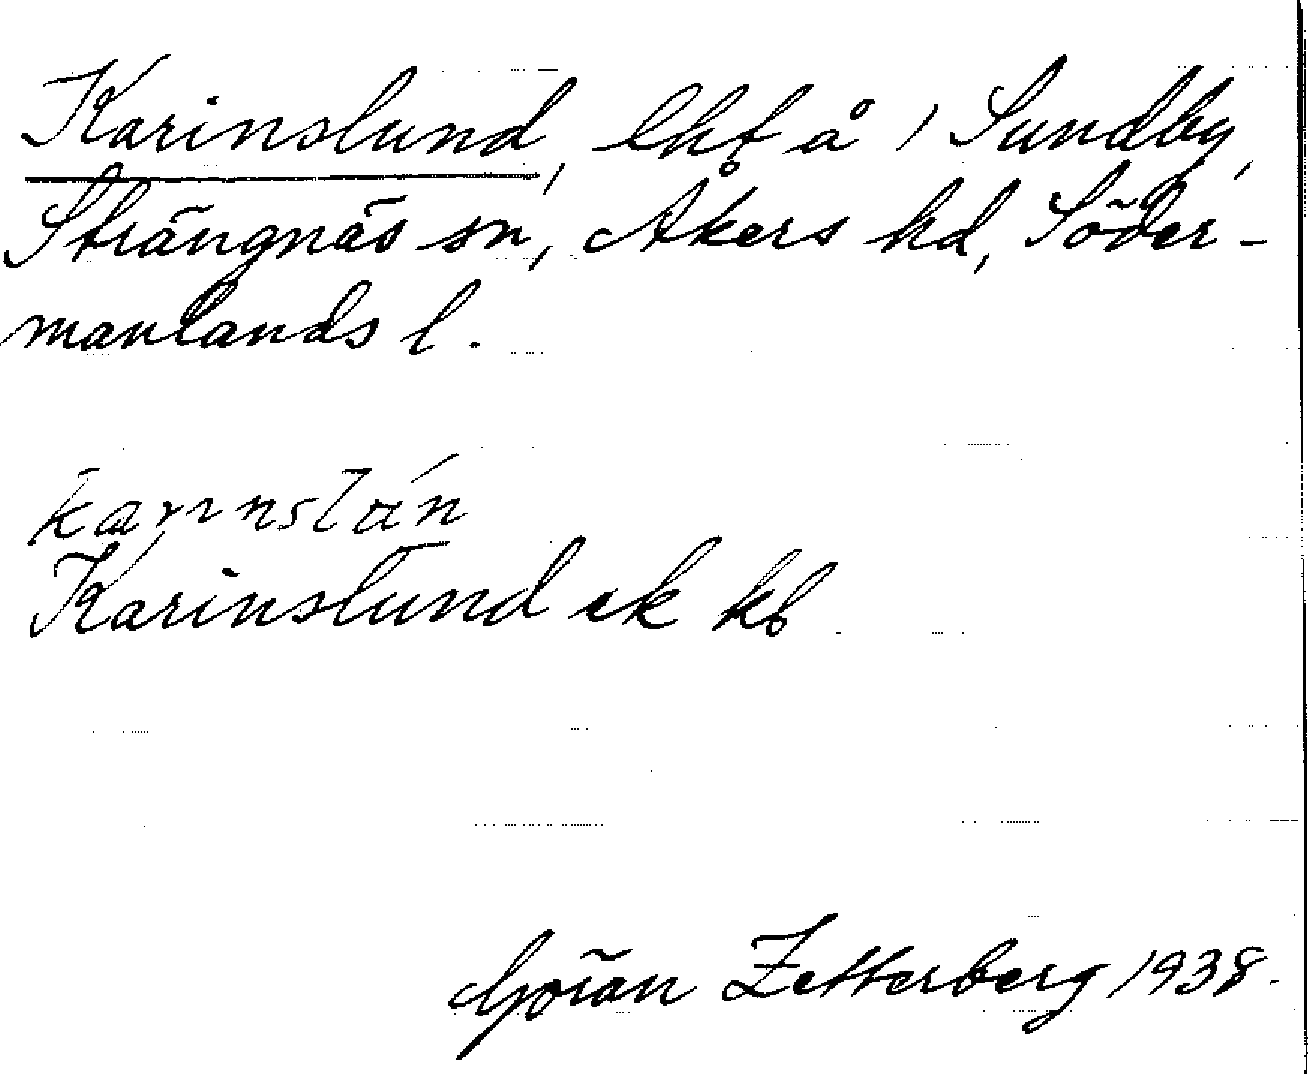 Karinslund, lhf å 1 Sundby,
Strängnäs sn, Åkers hd, Söder-
manlands l.
Karinslund ek kb
Göran Zetterberg 1938.